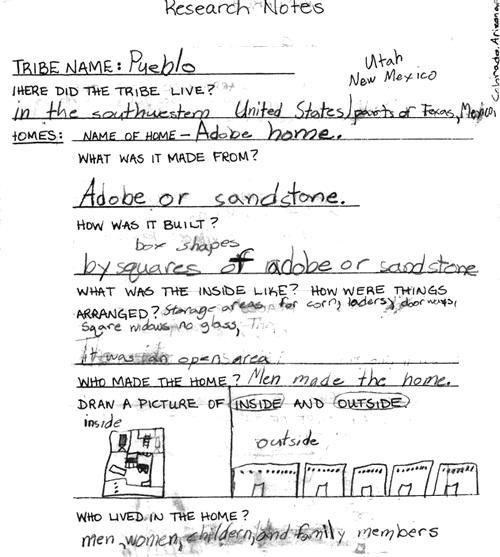 Research Notes
TRIBE NAME: Pueblo
Utah
New Mexico
Colorado, Arizona
HERE DID THE TRIBE LIVE?
in the southwestern United States/parts of Texas, Mexico,
HOMES: NAME OF HOME - Adobe home.
WHAT WAS IT MADE FROM?
Adobe or sandstone.
HOW WAS IT BUILT?
box shapes
by squares of adobe or sandstone
WHAT WAS THE INSIDE LIKE? HOW WERE THINGS
ARRANGED? Storage areas for corn, laders, doorways,
Sqare widows no glass,
It was an open area
WHO MADE THE HOME? Men made the home.
DRAW A PICTURE OF INSIDE AND OUTSIDE.
inside
outside
WHO LIVED IN THE HOME?
men, women, childern, and family members